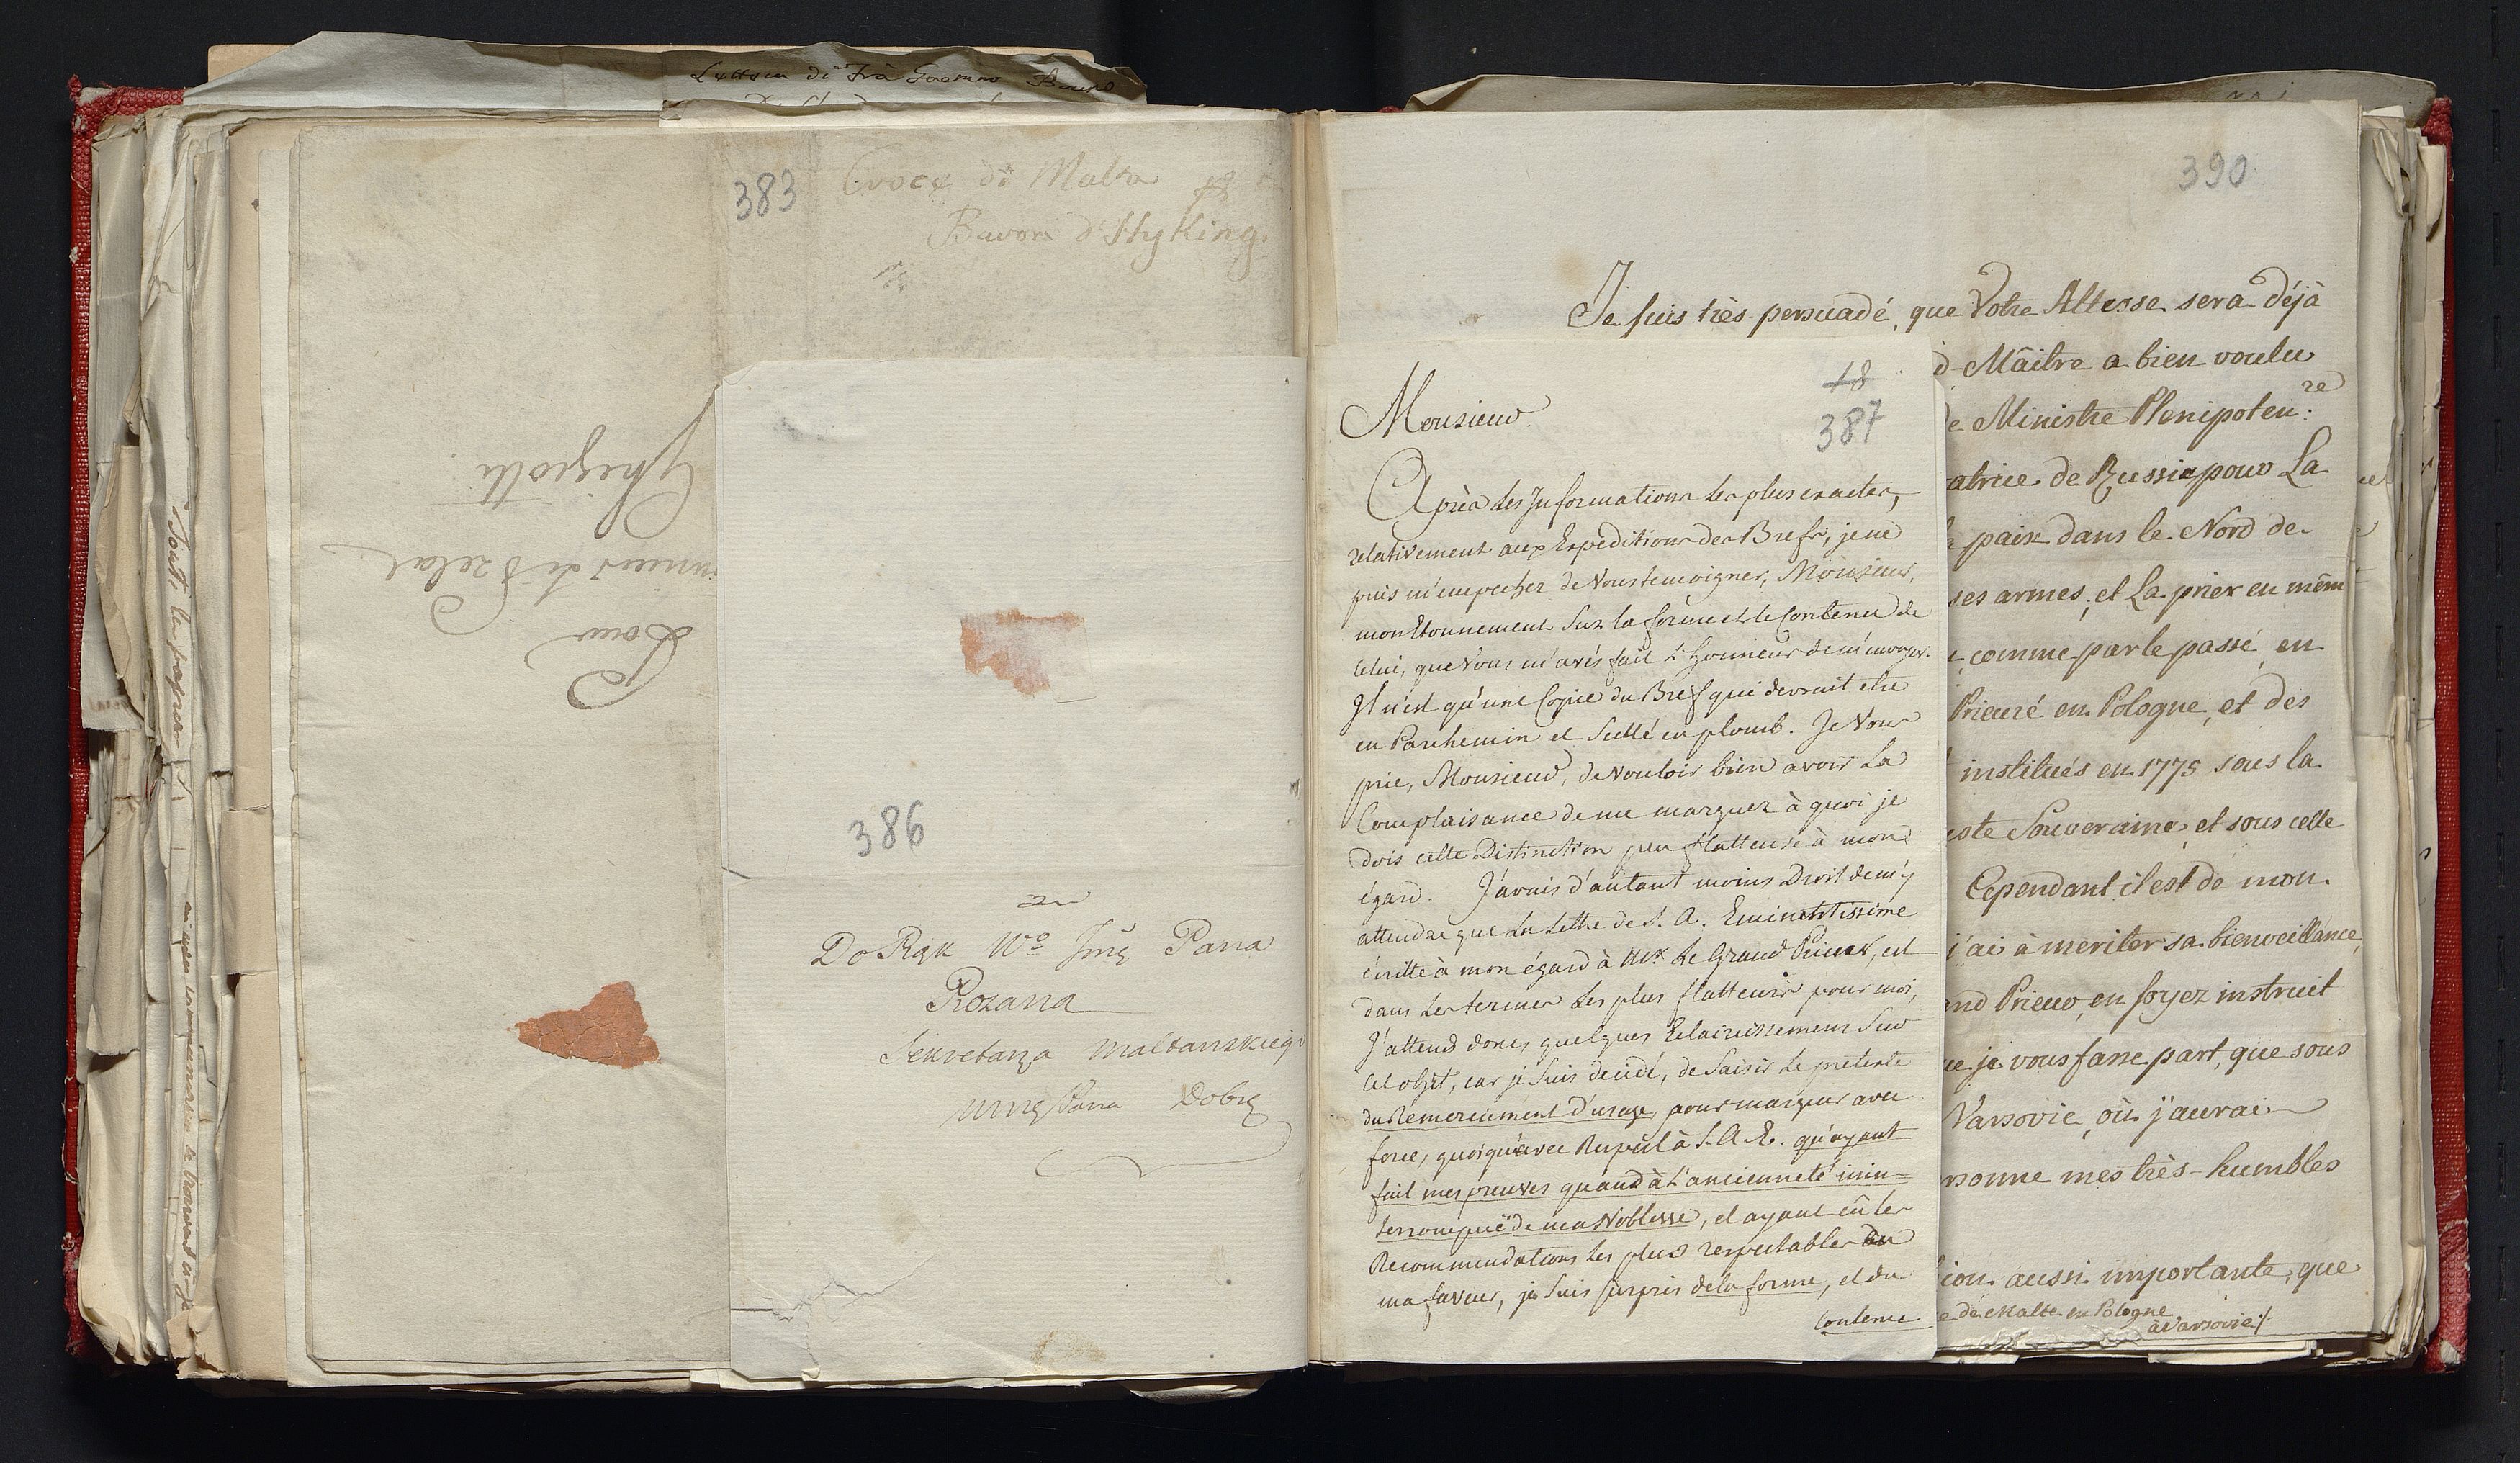 Lettera di Frà Gaetano Bruno
383
Croce di Malta 18
Baron d'Hyking
Pour
Monsieur le Prelat
Ghigiotti
Touts les papiers
386
Do Rąk Wo Jmć Pana
Rozana
Sekretarza Maltanskiego
mmg Pana Dobrę
390
Je suis très persuadé, que Votre Altesse sera déjà
d Mâitre a bien voulu
de Ministre Plenipoten:re
atrice de Russie pour La
paix dans le Nord de
ses armes, et La prier en mêm
comme par le passé, en
Prieuré en Pologne, et des
institués en 1775 sous la
este Souveraine, et sous celle
Cependant il est de mon
j'ai à meriter sa bienveillance,
and Prieur, en soyez instruit
ue je vous fasse part, que sous
Varsovie, où j'aurai
rsonne mes très-humbles
ion aussi importante, que
e de Malte en Pologne
à Varsovie ./.
18
387
Monsieur.
Après les Informations les plus exactes,
relativement aux Expeditions des Brefs, je ne
puis m'empecher de Vous temoigner, Monsieur,
mon Etonnement Sur la forme et le Contenu de
Celui, que Vous m'avés fait l'Honneur de m'envoyer.
Il n'est qu'une Copie du Bref qui devrait etre
en Parchemin et Scellé en plomb. Je Vous
prie, Monsieur, de Vouloir bien avoir La
Complaisance de me marquer à quoi je
dois cette Distinction peu flatteuse à mon
égard. J'avais d'autant moins Droit de m'y
attendre que La Lettre de S. A. Eminentissime
écritte à mon égard à Mr. Le Grand Prieur, est
dans les termes les plus flatteurs pour moi,
J'attends donc quelques Eclaircissemens Sur
Cet objet, car je Suis decidé, de Saisir le pretexte
du Remerciment d'usage, pour marquer avec
force, quoiqu'avec Respect à S. A. E. qu'ayant
fait mes preuves quand à L'ancienneté inin=
terrompuë de ma Noblesse, et ayant eû les
Recommendations les plus respectables en
ma faveur, je Suis surpris de la forme, et du
Contenu